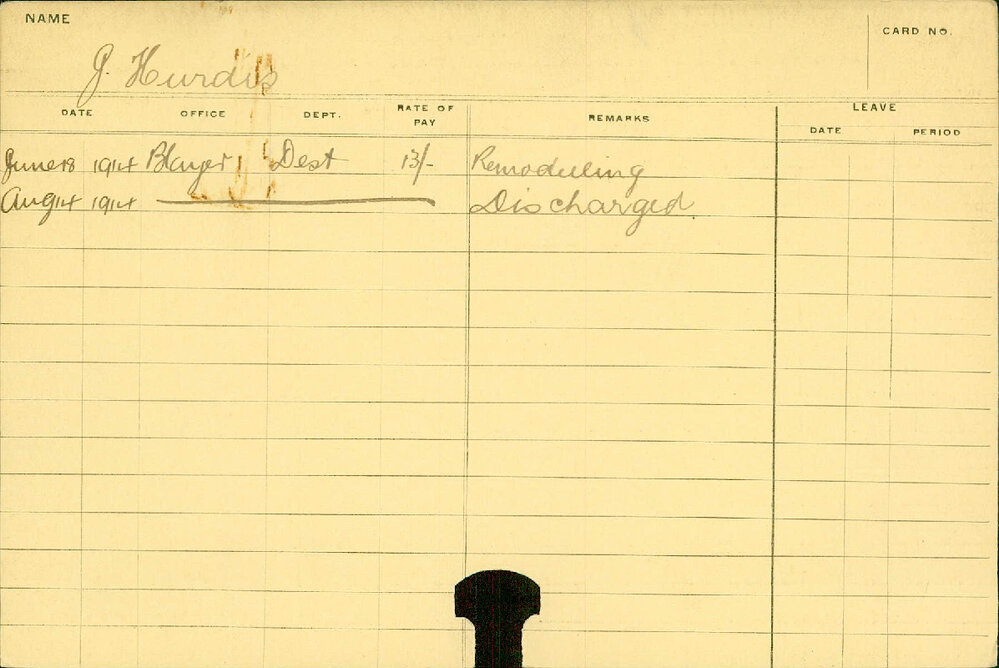 NAME
CARD NO.
J. Hurdis
DATE OFFICE DEPT. RATE OF PAY REMARKS LEAVE
DATE PERIOD
June 18 1914 Dest 13/- Remoduling
Aug 14 1914 Discharged